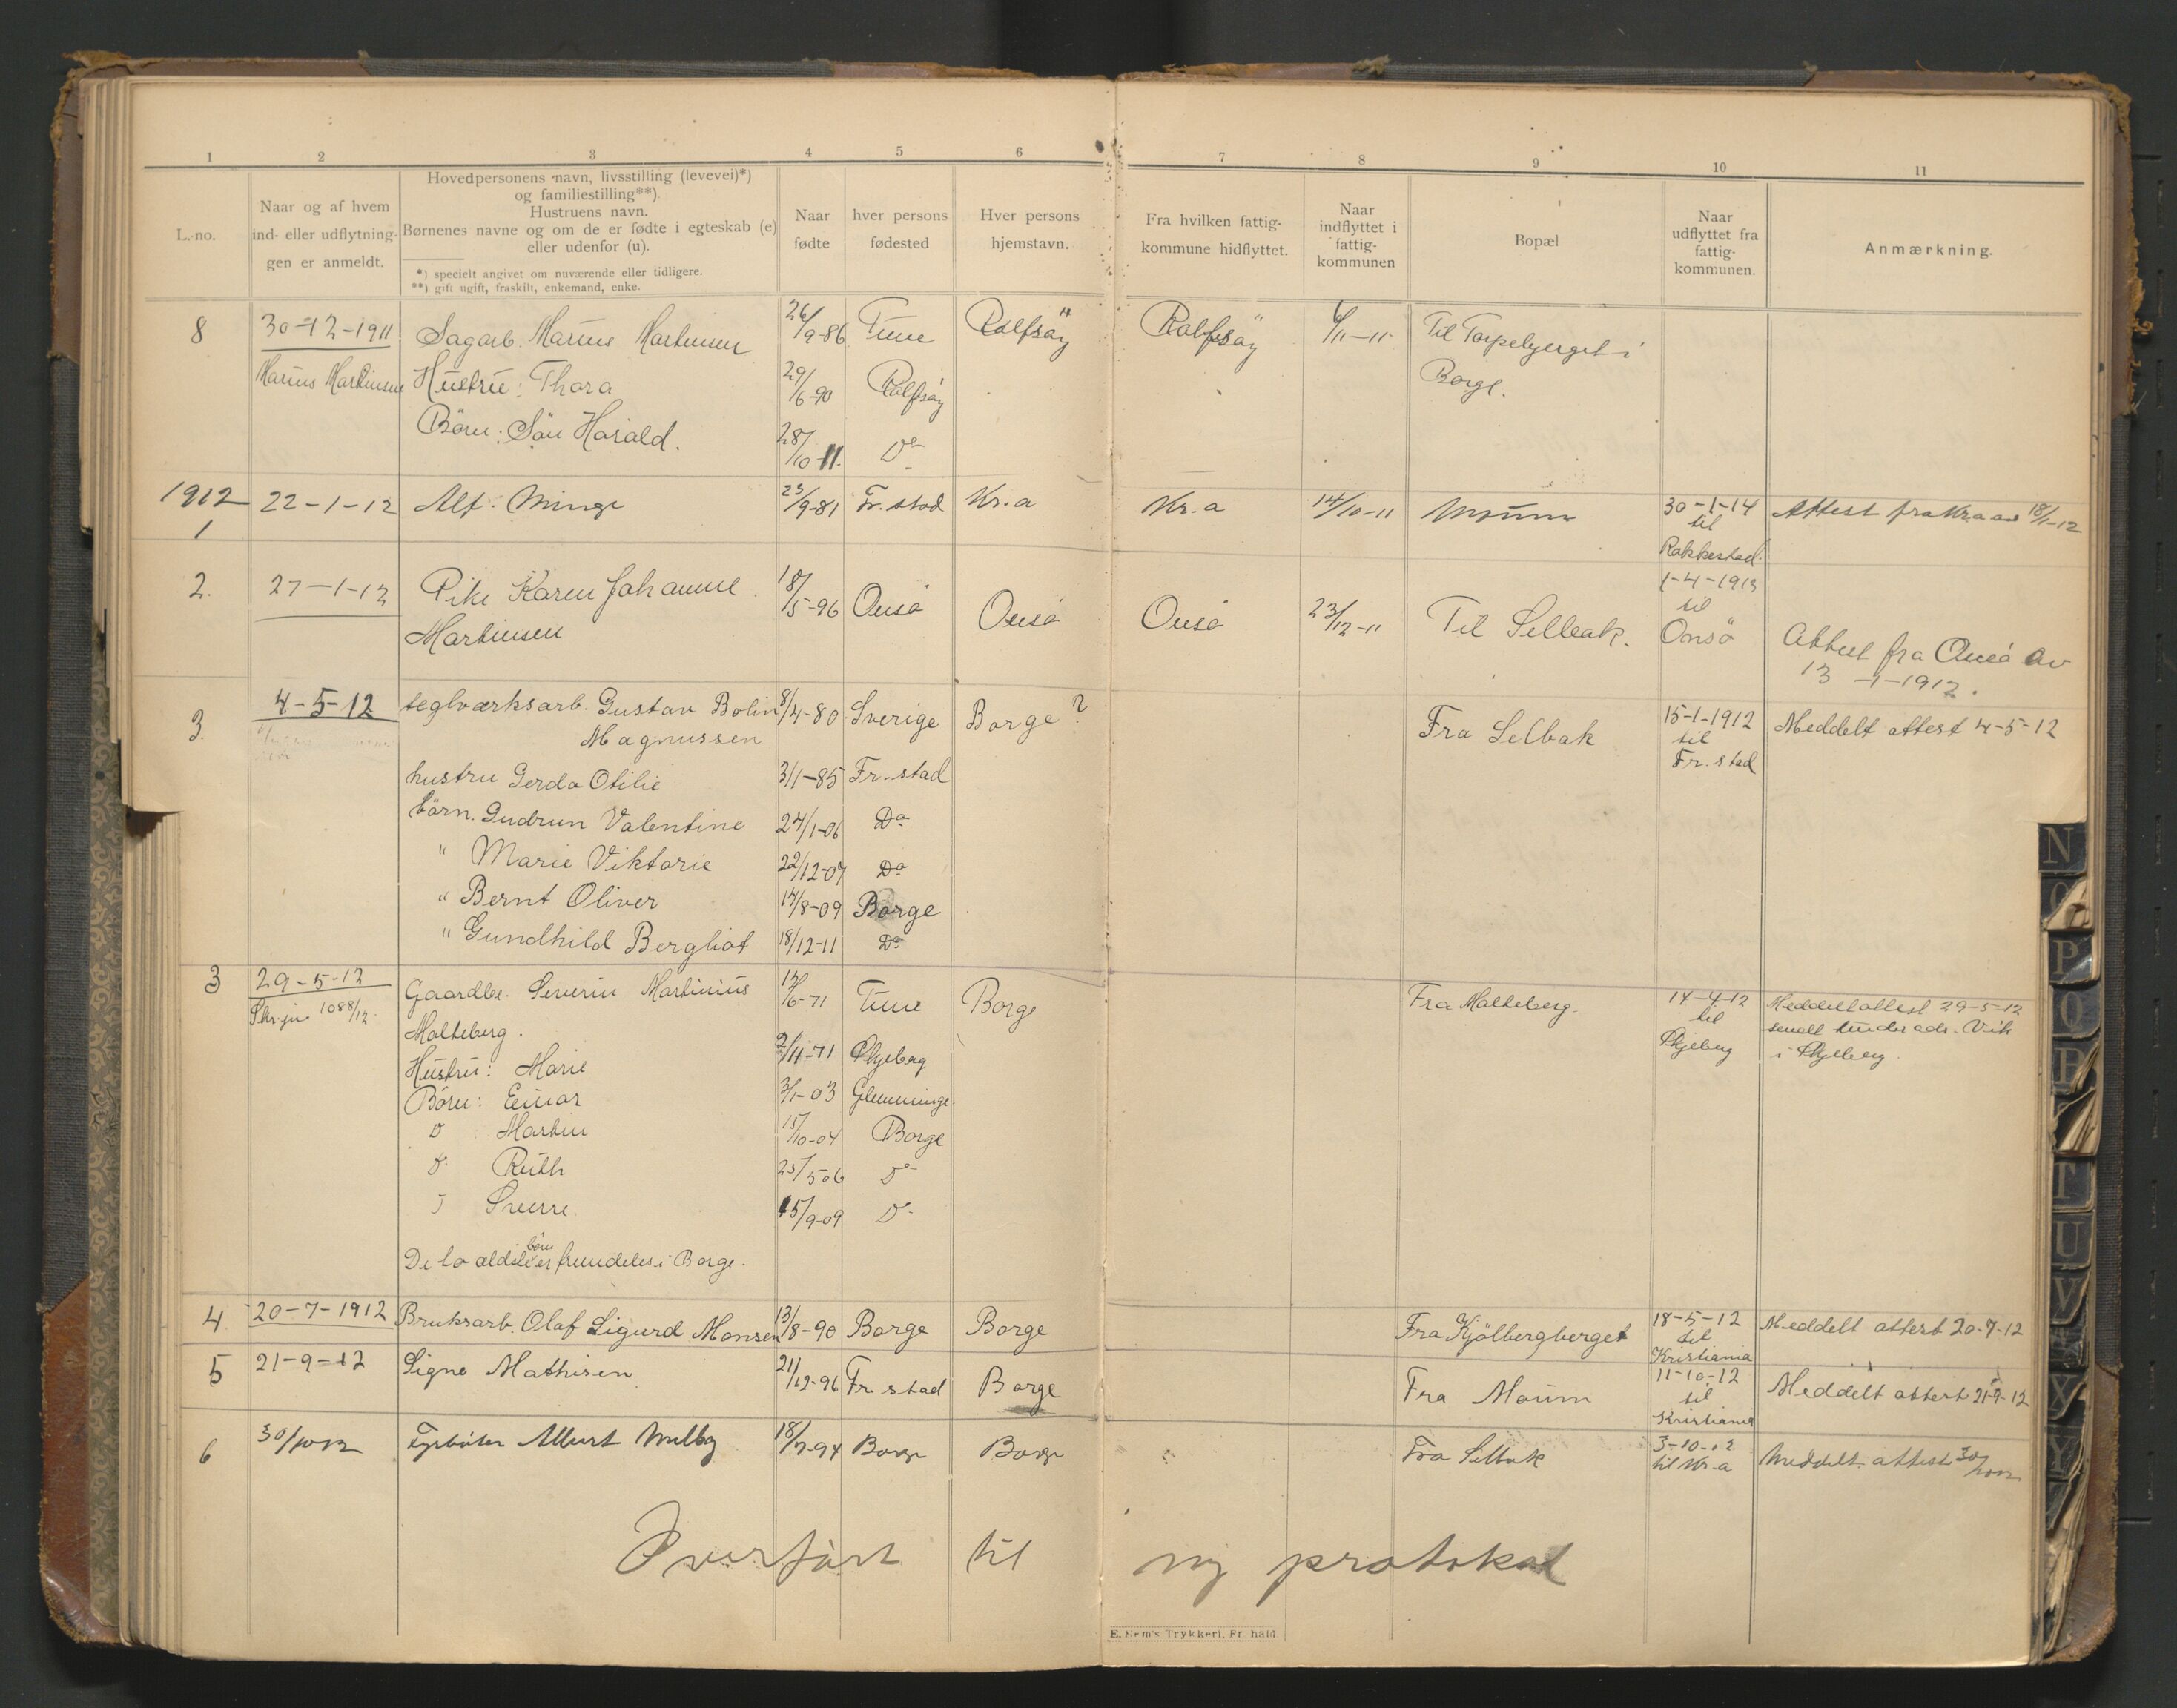 1 2 3 4 5 6 7 8 9 10 11
L.-no.
Naar og af hvem
ind- eller udflytnin-
gen er anmeldt.
Hovedpersonens navn, livsstilling (levevei)*)
og familiestilling**)
Hustruens navn.
Børnenes navne og om de er fødte i egteskab (e)
eller udenfor (u).
*) specielt angivet om nuværende eller tidligere.
**) gift ugift, fraskilt, enkemand, enke.
Naar
fødte
hver persons
fødested
Hver persons
hjemstavn.
Fra hvilken fattig-
kommune hidflyttet.
Naar
indflyttet i
fattig-
kommunen
Bopæl
Naar
udflyttet fra
fattig-
kommunen.
Anmærkning.
8 30-12-1911 Sagarb. Marius Martinsen 26/9-86 Tune Rolfsøy Rolfsøy 6/11-11 Til Torpebjerget i
Marius Martinsen Hustru: Thora 29/6-90 Rolfsøy Borge.
Börn: Sön Harald. 28/10-11. Do
1912
1 22-1-12 Alf Minge 23/9-81 Fr.stad Kr.a Kr.a 14/10-11 Moum 30-1-14 Attest fra Kra av 18/1-12
til
Rakkestad.
2. 27-1-12 Pike Karen Johanne 18/5-96 Onsö Onsö Onsö 23/12-11 Til Selbak. 1-4-1913
til
Martinsen Onsö Attest fra Onsö av
13-1-1912.
3. 4-5-12 teglværksarb. Gustav Bolin 8/4-80 Sverige Borge? Fra Selbak 15-1-1912 Meddelt attest 4-5-12
Magnussen til
Fr.stad
hustru Gerda Otilie 3/1-85 Fr.stad
börn. Gudrun Valentine 24/1-06 Do
" Marie Viktorie 22/12-07 Do
" Bernt Oliver 14/8-09 Borge
" Gundhild Bergliot 18/12-11 Do
3 29-5-12 Gaardbr. Severin Martinius 14/6-71 Tune Borge Fra Malteberg. 14-4-12 Meddelt attest 29-5-12
Skr.jn. 1088/12. Malteberg. til sendt under adr. Vik
Skjeberg i Skjeberg.
Hustru: Marie 2/11-71 Skjeberg
Börn: Einar 3/1-03 Glemminge
D Martin 15/10-04 Borge
D Ruth 25/5 06 Do
D Sverre 15/9-09 Do
De to ældste börn er fremdeles i Borge.
4 20-7-1912 Bruksarb. Olaf Sigurd Monsen 13/8-90 Borge Borge Fra Kjölbergberget 18-5-12 Meddelt attest 20-7-12
til
Kristiania
5 21-9-12 Signe Mathisen 21/12-96 Fr.stad Borge Fra Moum 11-10-12 Meddelt attest 21-9-12
til
Kristiania
6 30/10 12 Fyrböter Albert 18/7-94 Borge Borge Fra Selbak 3-10-12 Meddelt attest 30/10 12
til Kr.a
Overfört til ny protokol
E. Nem's Trykkeri, Fr.hald
N
O
P
Q
R
T
U
V
X
Y